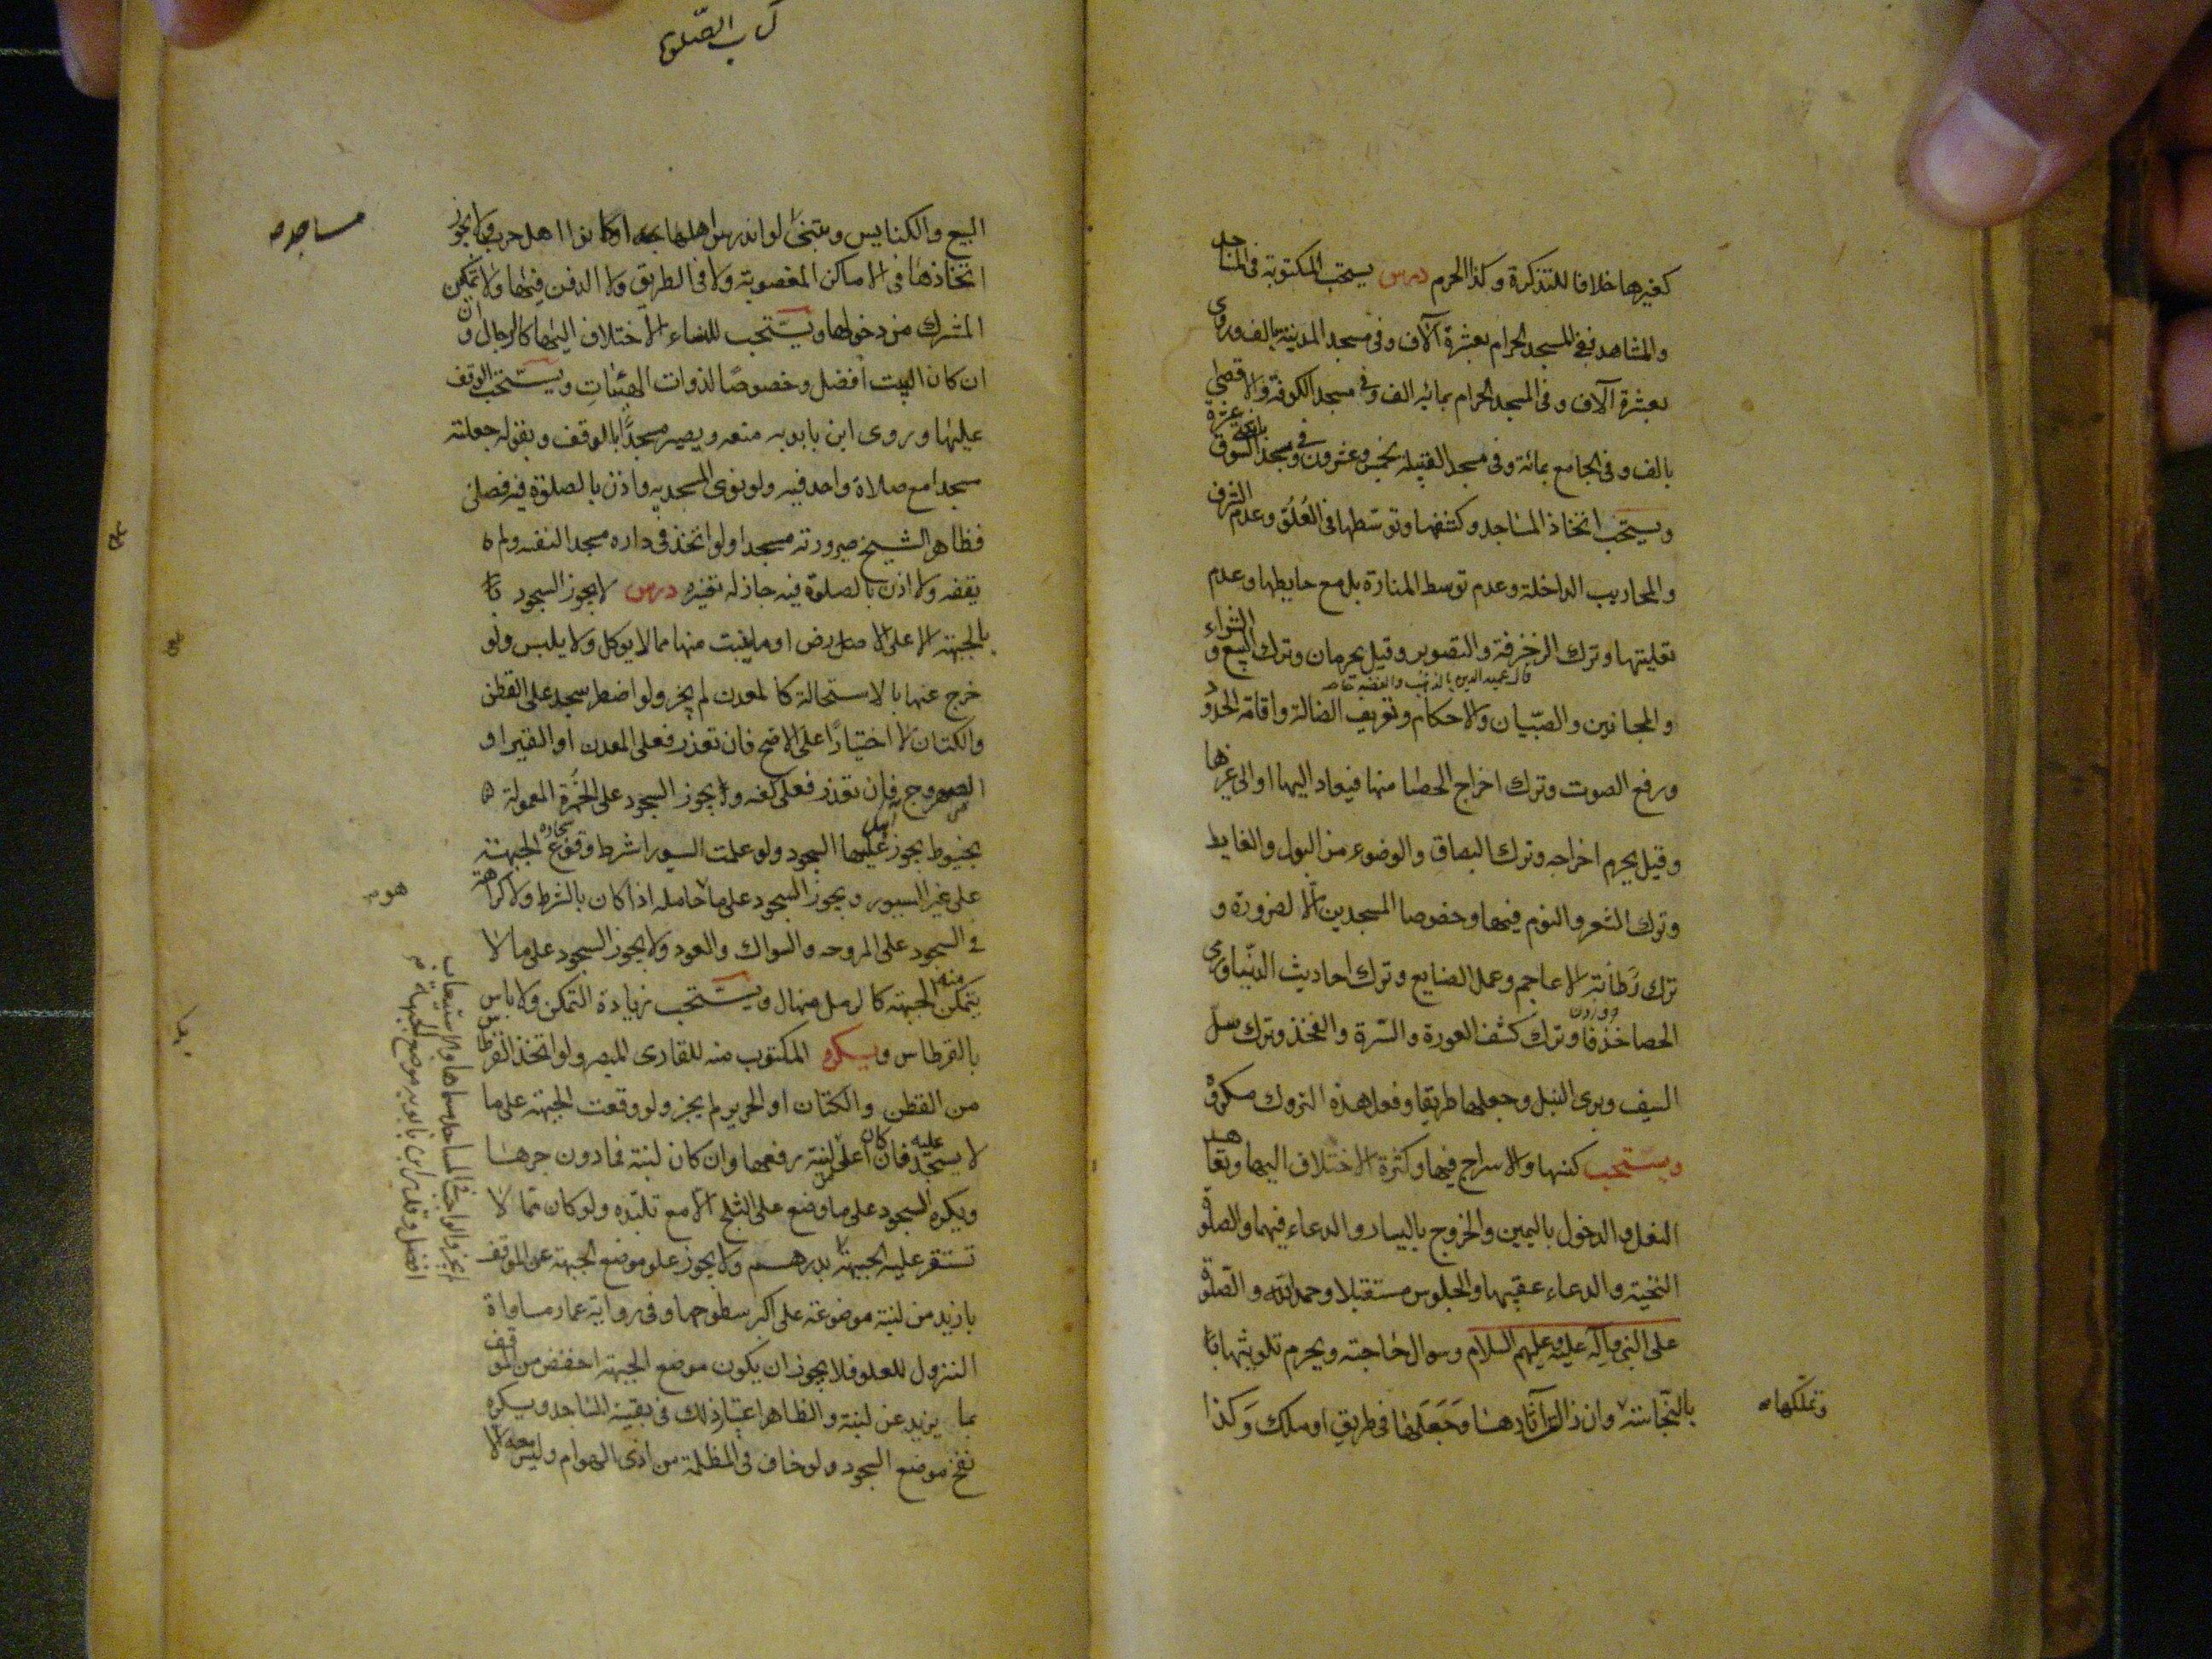 كغيرها خلافا للتذكرة وكذا الحرم درس يستحب المكتوبة فى المساجد
والمشاهد ففى المسجد الحرام بعشرة آلاف وفى مسجد المدينة بالف وروى
بعشرة آلاف وفى المسجد الحرام بمائة الف وفى مسجد الكوفة والاقصى
بالف وفى الجامع بمائة وفى مسجد القبيلة بخمس وعشرون وفى مسجد السوق باثنتى عشرة
ويستحب اتخاذ المساجد وكشفها وتوسطها فى العلو وعدم الشرف
والمحاريب الداخلة وعدم توسط المنارة بل مع حايطها وعدم
تعليتها وترك الزخرفة والتصوير وقيل يحرمان وترك البيع والشراء
قال عميد الدين بالذهب والفضة خاصه
والمجانين والصبيان والاحكام وتعريف الضالة واقامة الحدود
ورفع الصوت وترك اخراج الحصا منها فيعاد اليها او الى غيرها
وقيل يحرم اخراجه وترك البصاق والوضوء من البول والغايط
وترك الشعر والنوم فيها وخصوصا المسجدين الا لضرورة و
ترك رطانة الاعاجم وعمل الصنايع وترك احاديث الدنيا ورمى
الحصا خذفا وترك كشف العورة والسرة والفخذ وترك سل
السيف وبرى النبل وجعلها طريقا وفعل هذه التروك مكروه
ويستحب كنسها والاسراج فيها وكثرة الاختلاف اليها وتعاهد
النعل والدخول باليمين والخروج باليسار والدعاء فيهما والصلوة
التحية والدعاء عقيبها والجلوس مستقبلا وحمد الله والصلوة
على النبى وآله عليه وعليهم السلام وسوال حاجته ويحرم تلويثها
بالنجاسة وان زالت آثارها وجعلها فى طريق او ملك وكذا
وتملكها
كتاب الصلوة
البيع والكنايس ويبنى لو اندرس اهلها او كانوا اهل حرب ولا يجوز
مساجد
اتخاذها فى الاماكن المغصوبة ولا فى الطريق ولا الدفن فيها ولا تمكين
المشرك من دخولها ويستحب للنساء الاختلاف اليها كالرجال و
ان كان البيت افضل وخصوصا لذوات الهيئات ويستحب الوقف
عليها وروى ابن بابويه منعه ويصير مسجدا بالوقف وبقوله جعلته
مسجدا مع صلاة واحد فيه ولو نوى المسجدية واذن بالصلوة فيه فصلى
فظاهر الشيخ صيرورته مسجدا ولو اتخذ فى داره مسجدا لنفسه ولم
يقفه ولا اذن بالصلوة فيه جاز له تغييره درس لا يجوز السجود
بالجبهة الا على الارض او ما ينبت منها مما لا يوكل ولا يلبس ولو
خرج عنها بالاستحالة كالمعدن لم يجز ولو اضطر سجد على القطن
والكتان لا اختيارا على الاصح فان تعذر فعلى المعدن او القير او
الصهروج فان تعذر فعلى كفه ولا يجوز السجود على الخمرة المعمولة
بخيوط يجوز عليها السجود ولو عملت السيور اشترط وقوع الجبهة
على غير السيور ويجوز السجود على ما حامله اذا كان بالشرط ولا كراهة
هو
فى السجود على المروحه والسواك والعود ولا يجوز السجود على ما لا
يتمكن منه الجبهة كالرمل منهال ويستحب زيادة التمكن ولا باس
بالقرطاس ويكره المكتوب منه للقارى المبصر ولو اتخذ القرطاس
من القطن والكتان او الحرير لم يجز ولو وقعت الجبهة على ما
لا يسجد عليه فان كان اعلى من لبنة رفعها وان كان لبنة فما دون جرها
ويكره السجود على ما وضع على الثلج الا مع تلبده ولو كان مما لا
تستقر عليه الجبهة لم يجز ولا يجوز علو موضع الجبهة عن الموقف
بازيد من لبنة موضوعة على اكبر سطوحها وفى رواية عمار مساواة
النزول للعلو فلا يجوز ان يكون موضع الجبهة اخفض من الموقف
بما يزيد عن لبنة والظاهر اعتبار ذلك فى بقية المساجد ويكره
نفخ موضع السجود ولو خاف فى المظلمة من اذى الهوام وليس معه الا